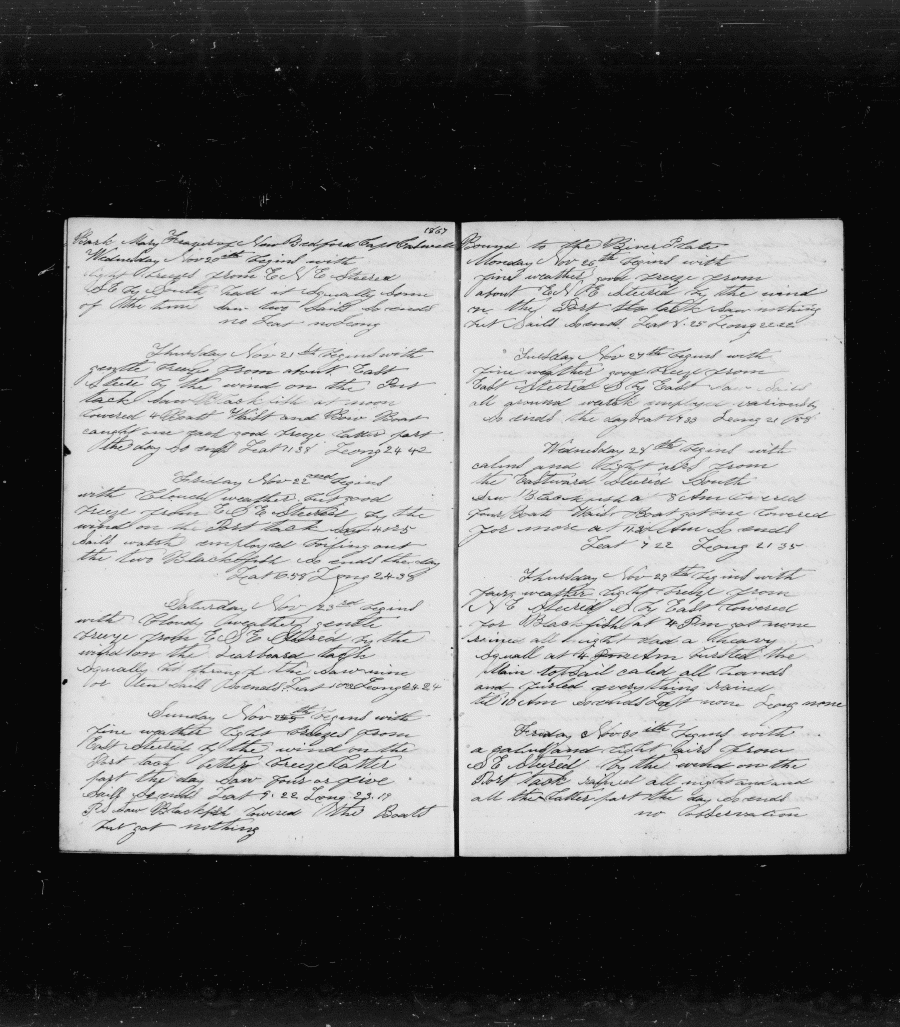 1867
Bark Mary Frazier of New Bedford Capt
Wednesday Nov 20th begins with
light breezes from E N E Steered
SE by South had it squally some
of the time saw two Sails So ends
no Lat no Long
Thursday Nov 21st begins with
gentle breeze from about East
Steered by the wind on the Port
tack Saw Blackfish at noon
lowered 4 Boats Waist and Bow Boat
caught one each good breeze latter part
the day So ends Lat 11 38 Long 24 42
Friday Nov 22nd begins
with Cloudy weather but good
breeze from E S E Steered by the
wind on the Port tack saw
sails watch employed boiling out
the two Blackfish So ends the day
Lat 6 58 Long 24 38
Saturday Nov 23rd begins
with Cloudy weather gentle
breeze from E S E Steered by the
wind on the Larboard tack
squally through the saw nine
or ten Sails So ends Lat Long 24 24
Sunday Nov begins with
fine weather light breezes from
East Steered by the wind on the
Port tack better breeze latter
part the day saw four or five
Sails So ends Lat 9 22 Long 23 19
PS saw Blackfish lowered the Boats
but got nothing
Bound to the River Plate
Monday Nov 26th begins with
fine weather and breeze from
about E N E Steered by the wind
on the Port tack Saw nothing
but Sails So ends Lat 8 25 Long 22 22
Tuesday Nov 27th begins with
fine weather good breeze from
East Steered S by East saw sails
all around watch employed variously
So ends the day Lat Long 21
Wednesday 28th begins with
calms and light airs from
the Eastward Steered South
saw Blackfish at 8 AM lowered
four Boats Waist Boat got one lowered
for more at 11 AM So ends
Lat 7 22 Long 21 35
Thursday Nov 29th begins with
fair weather light breeze from
N E Steered S by East lowered
for Blackfish at 4 PM got none
rained all night had a heavy
squall at 4 AM bursted the
Main topsail called all hands
and furled everything rained
til 10 AM So ends Lat none Long none
Friday Nov 30th begins with
a calm and light airs from
S E Steered by the wind on the
Port tack rained all night again and
all the latter part the day So ends
no Observation